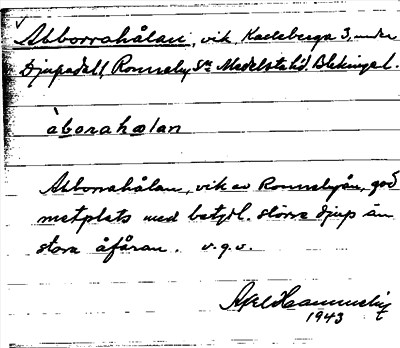 Abborrahålan, vik, Karlsberga 3, under
Djupadal 1, Ronneby Sn Medelsta hd. Blekinge l.
àbορahωlan
Abborrahålan, vik av Ronnebyån, god
metplats med betydl. större djup än
stora åfåran. v.g.v.
Axel
1943